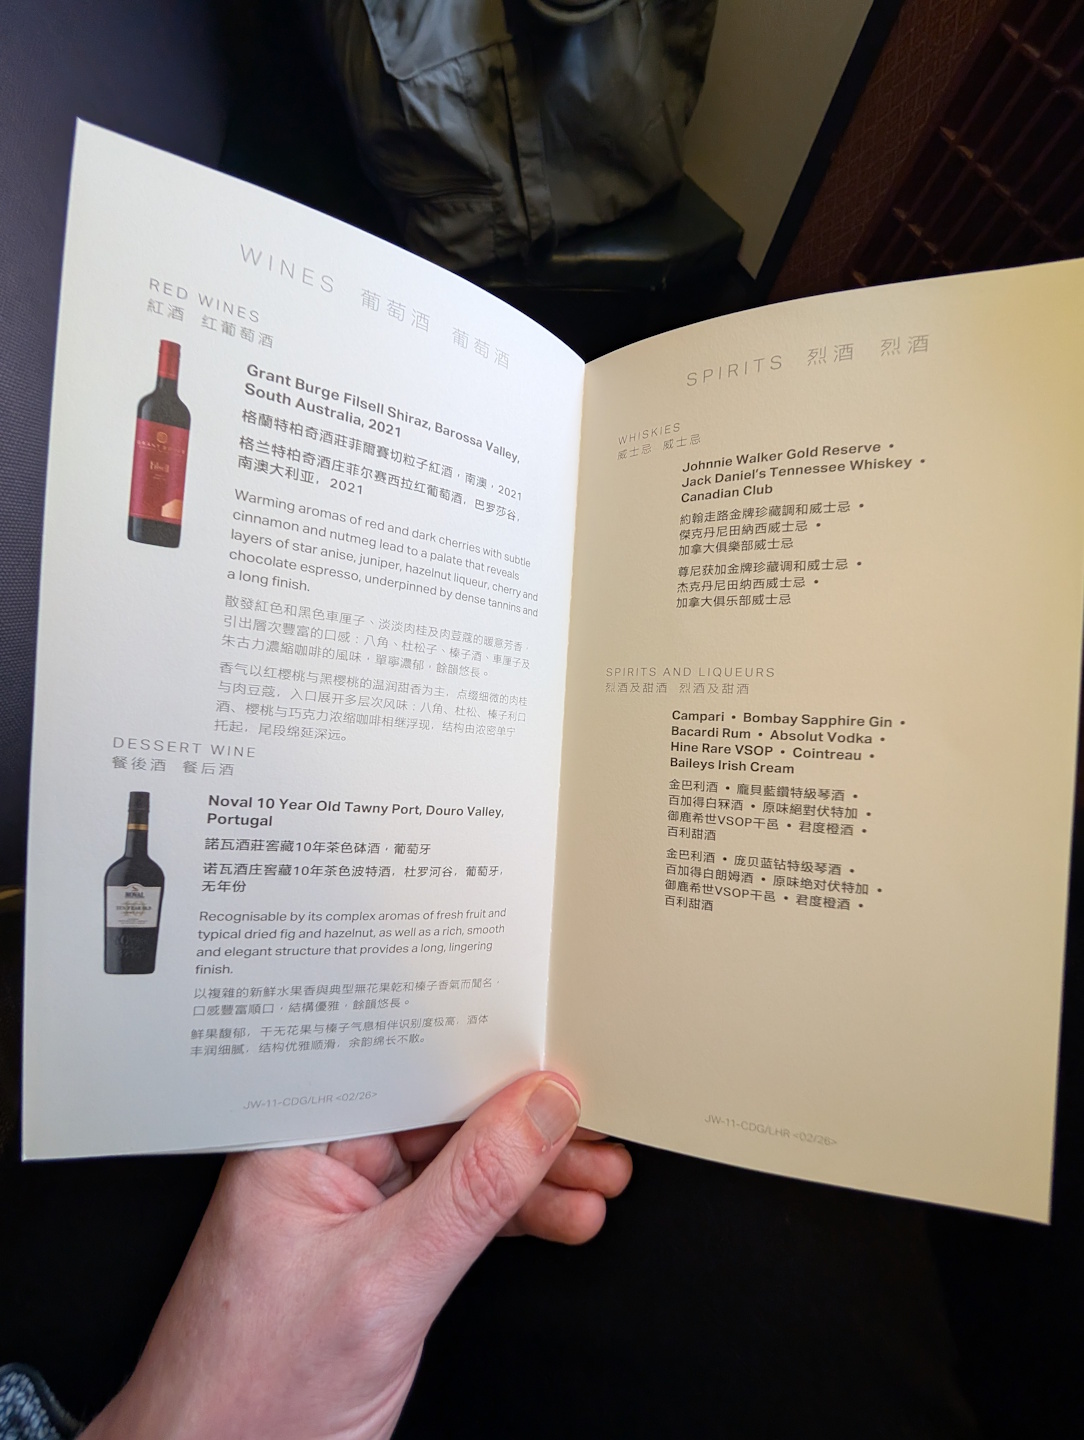 WINES 葡萄酒 葡萄酒
RED WINES
紅酒 红葡萄酒
Grant Burge Filsell Shiraz, Barossa Valley,
South Australia, 2021
格蘭特柏奇酒莊菲爾賽切粒子紅酒，南澳，2021
格兰特柏奇酒庄菲尔赛西拉红葡萄酒，巴罗莎谷，
南澳大利亚，2021
Warming aromas of red and dark cherries with subtle
cinnamon and nutmeg lead to a palate that reveals
layers of star anise, juniper, hazelnut liqueur, cherry and
chocolate espresso, underpinned by dense tannins and
a long finish.
散發紅色和黑色車厘子、淡淡肉桂及肉荳蔻的暖意芳香，
引出層次豐富的口感：八角、杜松子、榛子酒、車厘子及
朱古力濃縮咖啡的風味，單寧濃郁，餘韻悠長。
香气以红樱桃与黑樱桃的温润甜香为主，点缀细微的肉桂
与肉豆蔻，入口展开多层次风味：八角、杜松、榛子利口
酒、樱桃与巧克力浓缩咖啡相继浮现，结构由浓密单宁
托起，尾段绵延深远。
DESSERT WINE
餐後酒 餐后酒
NOVAL
Noval 10 Year Old Tawny Port, Douro Valley,
Portugal
諾瓦酒莊窖藏10年茶色砵酒，葡萄牙
诺瓦酒庄窖藏10年茶色波特酒，杜罗河谷，葡萄牙，
无年份
Recognisable by its complex aromas of fresh fruit and
typical dried fig and hazelnut, as well as a rich, smooth
and elegant structure that provides a long, lingering
finish.
以複雜的新鮮水果香與典型無花果乾和榛子香氣而聞名，
口感豐富順口，結構優雅，餘韻悠長。
鲜果馥郁，干无花果与榛子气息相伴识别度极高，酒体
丰润细腻，结构优雅顺滑，余韵绵长不散。
JW-11-CDG/LHR <02/26>
SPIRITS 烈酒 烈酒
WHISKIES
威士忌 威士忌
Johnnie Walker Gold Reserve •
Jack Daniel's Tennessee Whiskey •
Canadian Club
約翰走路金牌珍藏調和威士忌 •
傑克丹尼田納西威士忌 •
加拿大俱樂部威士忌
尊尼获加金牌珍藏调和威士忌 •
杰克丹尼田纳西威士忌 •
加拿大俱乐部威士忌
SPIRITS AND LIQUEURS
烈酒及甜酒 烈酒及甜酒
Campari • Bombay Sapphire Gin •
Bacardi Rum • Absolut Vodka •
Hine Rare VSOP • Cointreau •
Baileys Irish Cream
金巴利酒 • 龐貝藍鑽特級琴酒 •
百加得白冧酒 • 原味絕對伏特加 •
御鹿希世VSOP干邑 • 君度橙酒 •
百利甜酒
金巴利酒 • 庞贝蓝钻特级琴酒 •
百加得白朗姆酒 • 原味绝对伏特加 •
御鹿希世VSOP干邑 • 君度橙酒 •
百利甜酒
JW-11-CDG/LHR <02/26>